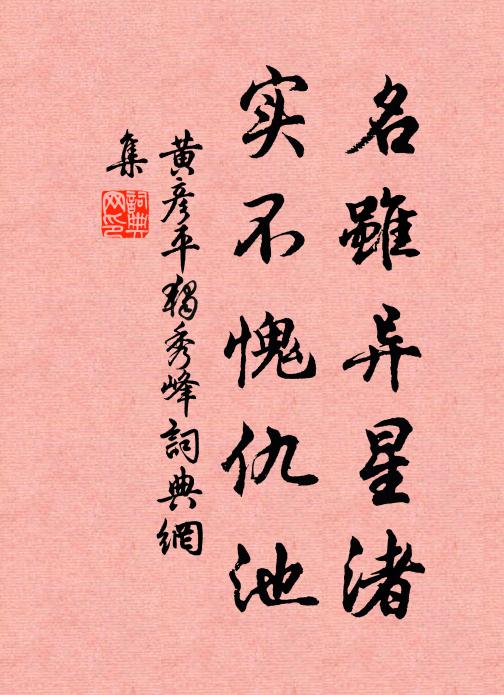 名虽异星渚
实不愧仇池
黄彦平独秀峰詞典網
集
詞典
网印